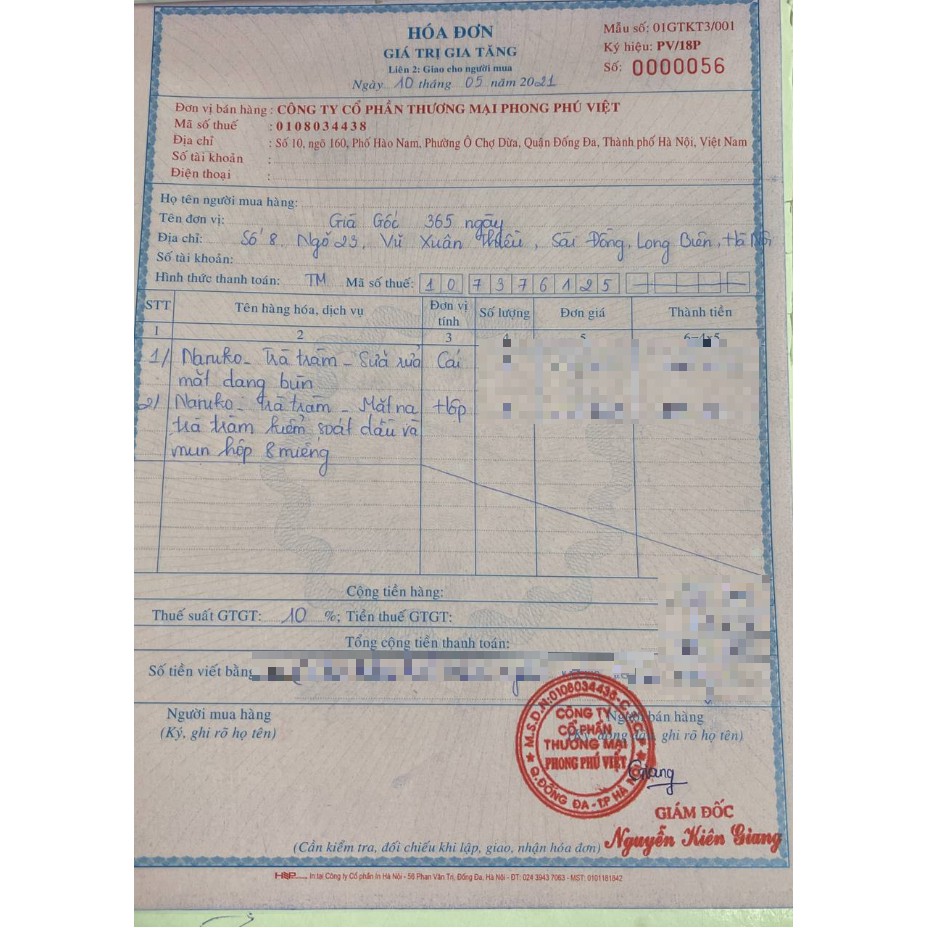 HÓA ĐƠN
GIÁ TRỊ GIA TĂNG
Liên 2: Giao cho người mua
Ngày 10 tháng 05 năm 2021
Mẫu số: 01GTKT3/001
Ký hiệu: PV/18P
Số: 0000056
Đơn vị bán hàng : CÔNG TY CỔ PHẦN THƯƠNG MẠI PHONG PHÚ VIỆT
Mã số thuế : 0108034438
Địa chỉ : Số 10, ngõ 160, Phố Hào Nam, Phường Ô Chợ Dừa, Quận Đống Đa, Thành phố Hà Nội, Việt Nam
Số tài khoản :
Điện thoại :
Họ tên người mua hàng:
Tên đơn vị: Giá Gốc 365 ngày
Địa chỉ: Số 8, Ngõ 23, Vũ Xuân Thiều, Sài Đồng, Long Biên, Hà Nội
Số tài khoản:
Hình thức thanh toán: TM Mã số thuế: 10 7376125
STT Tên hàng hóa, dịch vụ Đơn vị tính Số lượng Đơn giá Thành tiền
1 2 3 5 6=4x5
1/ Naruko - Trà tràm - Sữa rửa Cái
mặt dạng bùn
2/ Naruko - Trà tràm - Mặt nạ Hộp
trà tràm kiểm soát dầu và
mụn hộp 8 miếng
Cộng tiền hàng:
Thuế suất GTGT: 10 %; Tiền thuế GTGT:
Tổng cộng tiền thanh toán:
Số tiền viết bằng
Người mua hàng
(Ký, ghi rõ họ tên)
Người bán hàng
(Ký, đóng dấu, ghi rõ họ tên)
M.S.D.N:0108034438-C.T.C.P
CÔNG TY
CỔ PHẦN
THƯƠNG MẠI
PHONG PHÚ VIỆT
Q.ĐỐNG ĐA-TP HÀ NỘI
Giang
GIÁM ĐỐC
Nguyễn Kiên Giang
(Cần kiểm tra, đối chiếu khi lập, giao, nhận hóa đơn)
In tại Công ty Cổ phần in Hà Nội - 56 Phan Văn Trị, Đống Đa, Hà Nội - ĐT: 024 3943 7063 - MST: 0101181842